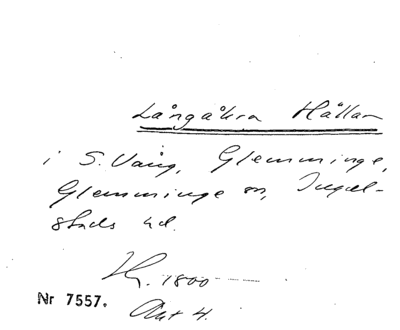 Långåkra Hällar
i S. Vång, Glemminge,
Glemminge sn, Ingel-
stads hd.
Hg. 1800
Akt 4.
Nr 7557.